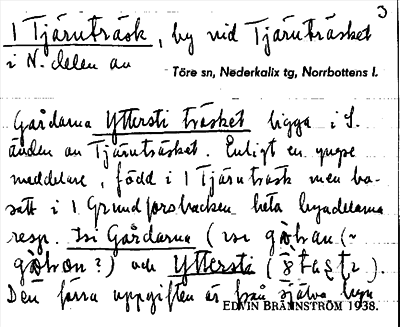 3
1 Tjärnträsk, by vid Tjärnträsket
i N. delen av
Töre sn, Nederkalix tg, Norrbottens l.
Gårdarna Yttersti träsket ligga i S.
änden av Tjärnträsket. Enligt en yngre
meddelare, född i 1 Tjärnträsk men bo-
satt i 1 Grundforsbacken heta byndelarna
resp. Isi Gårdarna (
och Yttersti (
Den förra uppgiften är från själva byn
EDVIN BRÄNNSTRÖM 1938.